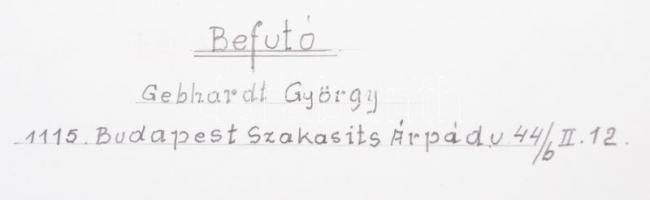 Befutó
Gebhardt György
1115. Budapest Szakasits Árpád u 44/b II. 12.